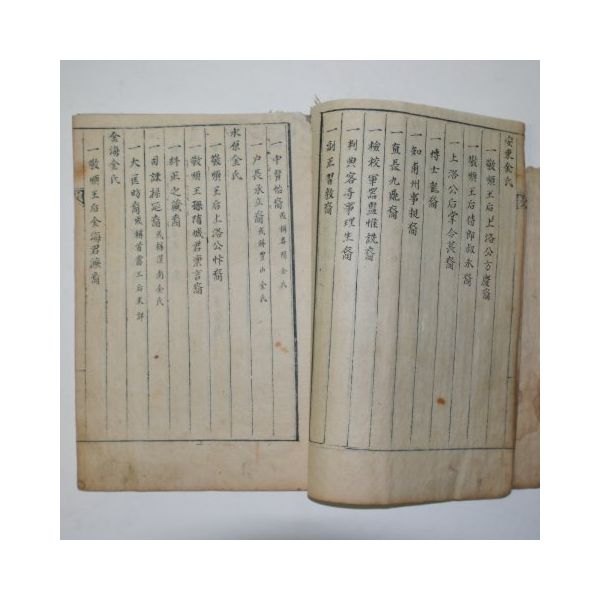 安東金氏
一敬順王后上洛公方慶裔
敬順王后侍郎叔承裔
一上洛公后掌令裔
一博士裔
一知甫州事裔
一直長九鼎裔
一檢校軍器監惟說裔
一判典客寺事理生裔
一副正習敦裔
一中習怡裔
一戶長承立裔或稱豐山金氏
水原金氏
一敬順王后上洛公裔
敬順王孫隋城君裔
一糾正之裔
一司諫裔或稱金氏
一大匡裔或稱首露王后未詳
金海金氏
一敬順王后金海君濂裔